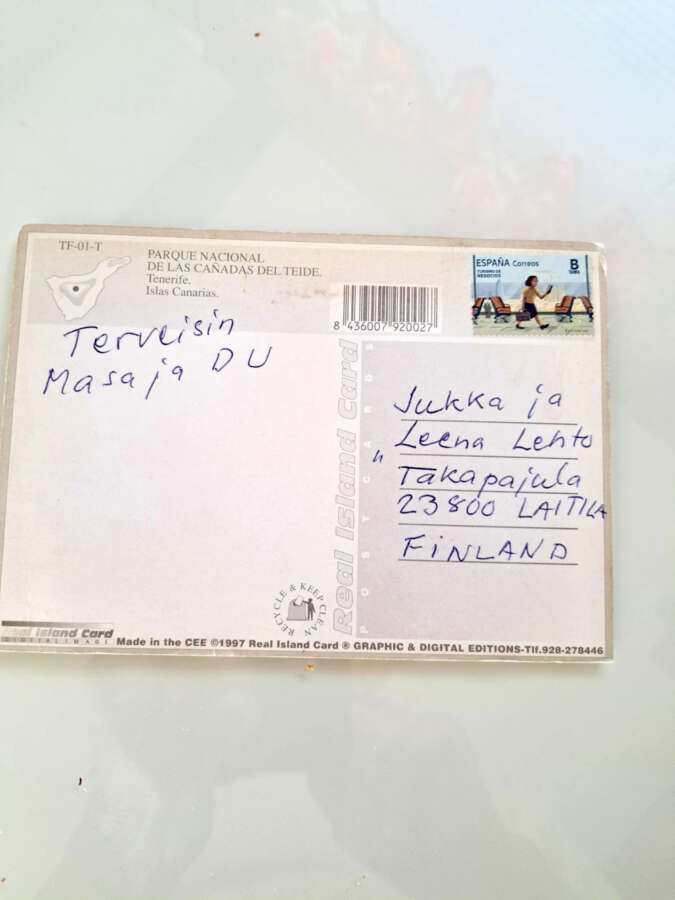 TF-01-T
PARQUE NACIONAL
DE LAS CAÑADAS DEL TEIDE.
Tenerife.
Islas Canarias.
8 436007 920027
ESPAÑA Correos
TURISMO DE
NEGOCIOS
B
Terveisin
Masa ja DU
Jukka ja
Leena Lehto
" Takapajula
23800 LAITILA
FINLAND
Real Island Card
POSTCARDS
RECYCLE & KEEP CLEAN
al Island Card
DIGITAL IMAGE
Made in the CEE ©1997 Real Island Card ® GRAPHIC & DIGITAL EDITIONS-Tlf.928-278446